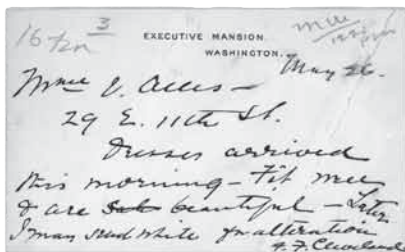 3
EXECUTIVE MANSION.
WASHINGTON.
May 26.
29 E. 11th St.
Dresses arrived
this morning – Fit well
& are beautiful – Later
I may send white for alteration
F. F. Cleveland